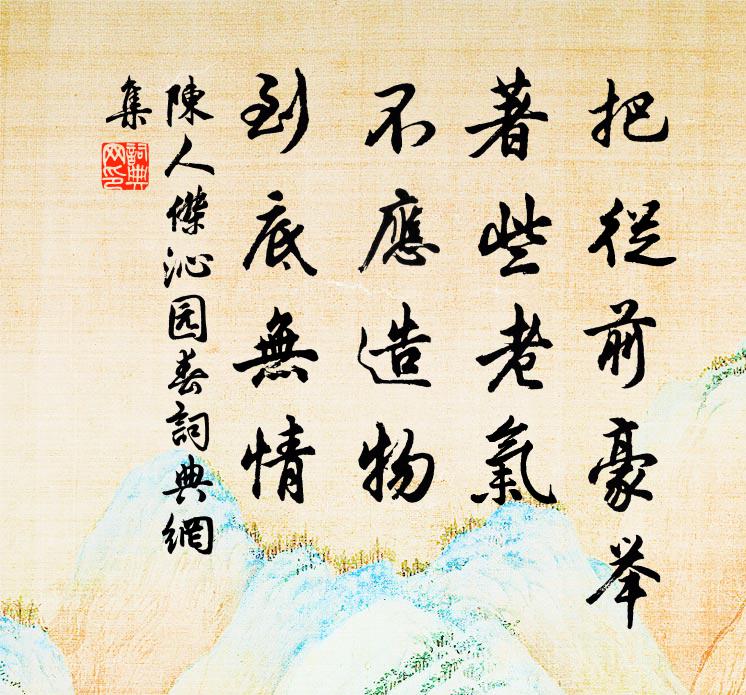 把從前豪举
著些老氣
不應造物
到底無情
陳人傑沁园春詞典網
集
詞典網印